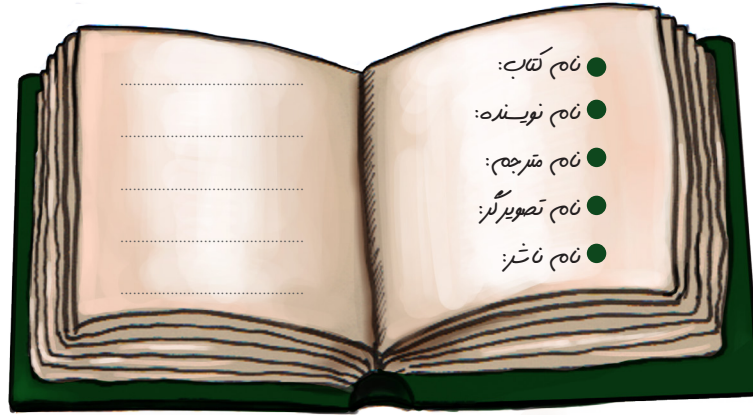 نام کتاب:
نام نویسنده:
نام مترجم:
نام تصویرگر:
نام ناشر: